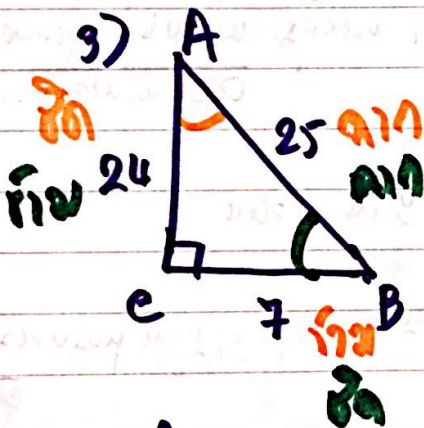 3) A
ชิด
ข้าม 24
25 ฉาก
ฉาก
C
7 ข้าม B
ชิด